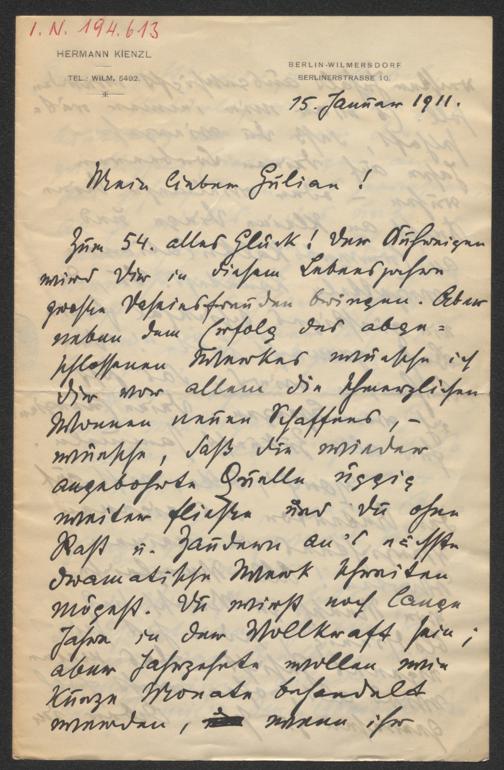 I. N. 194.613
HERMANN KIENZL
TEL.: WILM. 5492.
BERLIN-WILMERSDORF
BERLINERSTRASSE 10.
15. Januar 1911.
Mein lieber Gilian!
Zum 54. alles Glück! Der
wird Dir in diesem Lebensjahre
große Daseinsfreuden bringen. Aber
neben dem Erfolg des abge=
schlossenen Werkes wünsche ich
Dir vor allem die schmerzlichen
Wonnen neuen Schaffens, –
wünsche, daß die wieder
angebohrte Quelle üppig
weiter fließe und Du ohne
Rast u. Zaudern an's nächste
dramatische Werk schreiten
mögest. Du wirst noch lange
Jahre in der Vollkraft sein;
aber Jahrzehnte wollen wie
kurze Monate behandelt
werden, wenn ihr